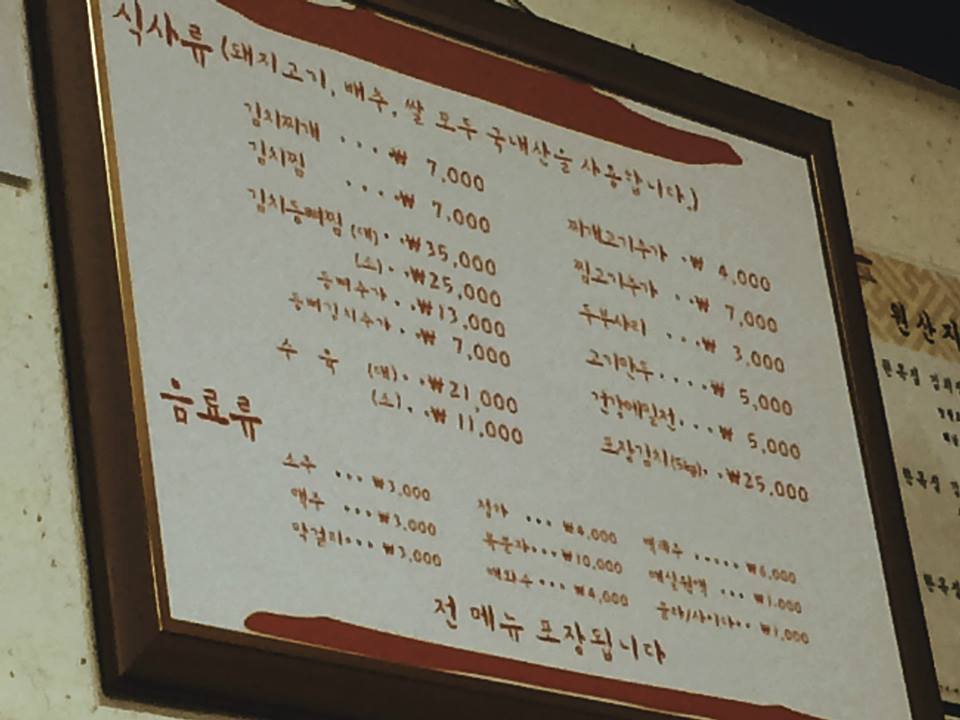 식사류 (돼지고기, 배추, 쌀 모두 국내산을 사용합니다.)
김치찌개 ... ₩ 7,000
김치찜 ... ₩ 7,000
김치등뼈찜 (대).. ₩35,000
(소).. ₩25,000
등뼈추가.. ₩13,000
등뼈김치추가.. ₩ 7,000
수 육 (대).. ₩21,000
(소).. ₩ 11,000
찌개고기추가 .₩ 4,000
찜고기추가 ..₩ 7,000
두부사리 ...₩ 3,000
고기만두....₩ 5,000
건강메밀전...₩ 5,000
포장김치(5kg)..₩25,000
음료류
소주 ...₩3,000
맥주 ...₩3,000
막걸리...₩3,000
청하 ...₩4,000
복분자...₩10,000
매화수...₩4,000
백세주 .....₩6,000
매실원액 ...₩1,000
콜라/사이다..₩1,000
전 메뉴 포장됩니다
원산지